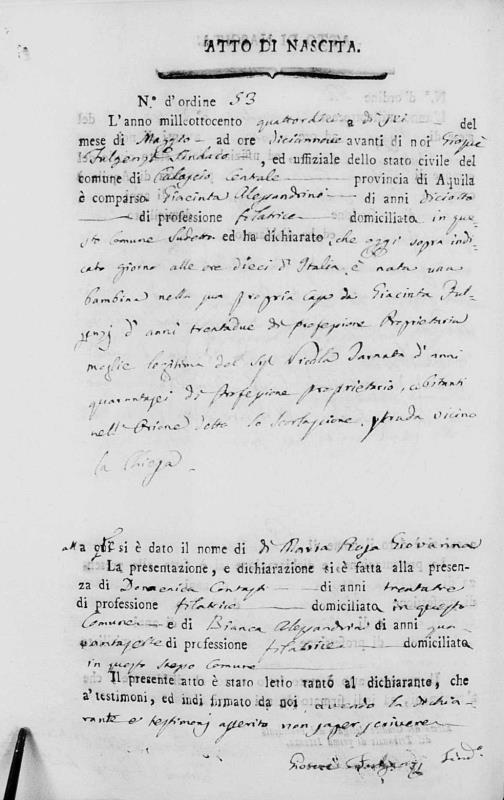 ATTO DI NASCITA.
N.º d'ordine 53
L'anno milleottocento quattordici a di sei del
mese di Maggio ad ore diciannove avanti di noi Giosuè
Fulgenzj Sindaco, ed uffiziale dello stato civile del
comune di Calascio Centrale provincia di Aquila
è comparsa Giacinta Alessandrini di anni diciotto
di professione filatrice domiciliata in que-
sto Comune sudetto ed ha dichiarato, che oggi sopra indi-
cato giorno alle ore dieci d'Italia, è nata una
bambina nella sua propria casa da Giacinta Ful-
genzj d'anni trentadue di professione Proprietaria
moglie legitima del Sig.r Nicola d'anni
quarantasei di Professione proprietario, abitanti
nell' Orione detto lo strada vicino
la Chiesa.
alla qle si è dato il nome di di Maria Rosa Giovanna
La presentazione, e dichiarazione si è fatta alla presen-
za di Domenica di anni trentatre
di professione filatrice domiciliata in questo
Comune e di Bianca Alessandrini di anni qua-
rantasette di professione filatrice domiciliata
in questo stesso Comune
Il presente atto è stato letto tanto al dichiarante, che
a' testimoni, ed indi firmato da noi, avendo la Dichia-
rante e testimonj asserito non saper scrivere
Giosuè Fulgenzj Sind.º